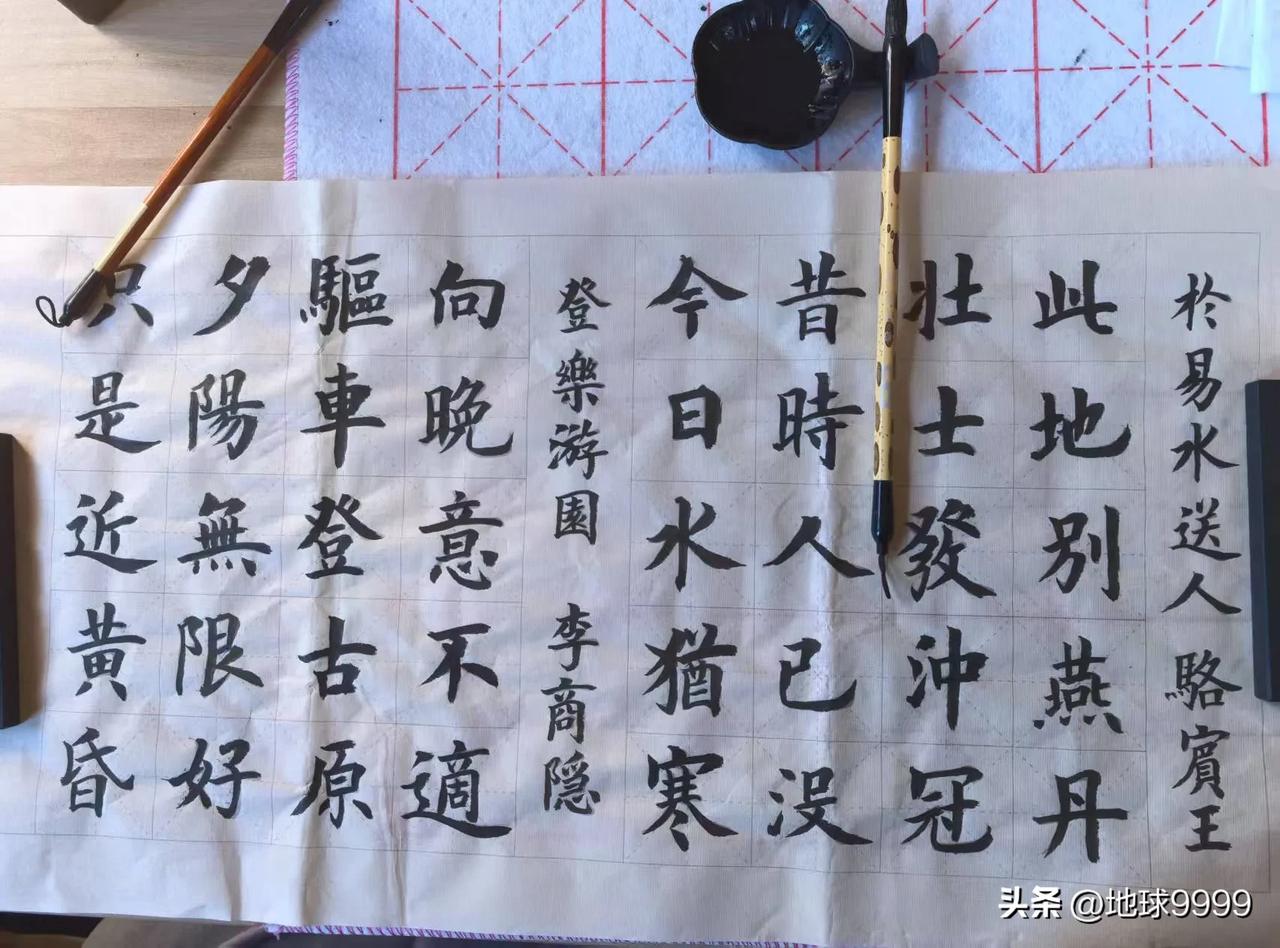 於易水送人 駱賓王
此地別燕丹
壯士發沖冠
昔時人已没
今日水猶寒
登樂游園 李商隐
向晚意不適
驅車登古原
夕陽無限好
只是近黄昏
头条 @地球9999